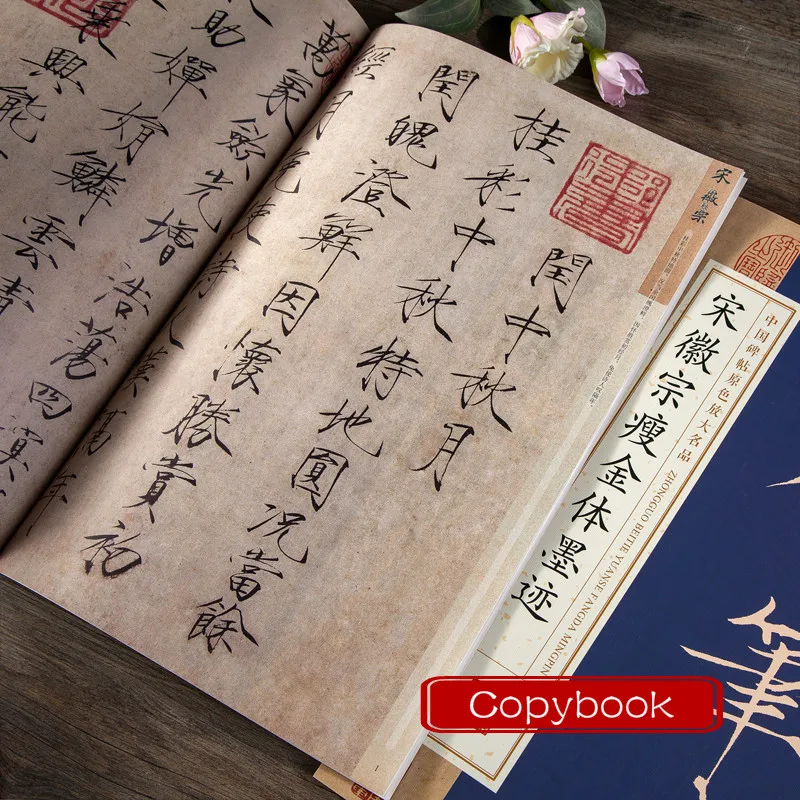 宋徽宗
閏中秋月
桂彩中秋特地圓況當餘
閏魄澄鮮因懷勝賞初
經月免使詩人嘆隔年
萬象斂光增浩蕩四溟
助嬋娟鱗雲清
興能
1
中国碑帖原色放大名品
宋徽宗瘦金体墨迹
ZHONGGUO BEITIE YUANSE FANGDA MINGPIN
筆
Copybook